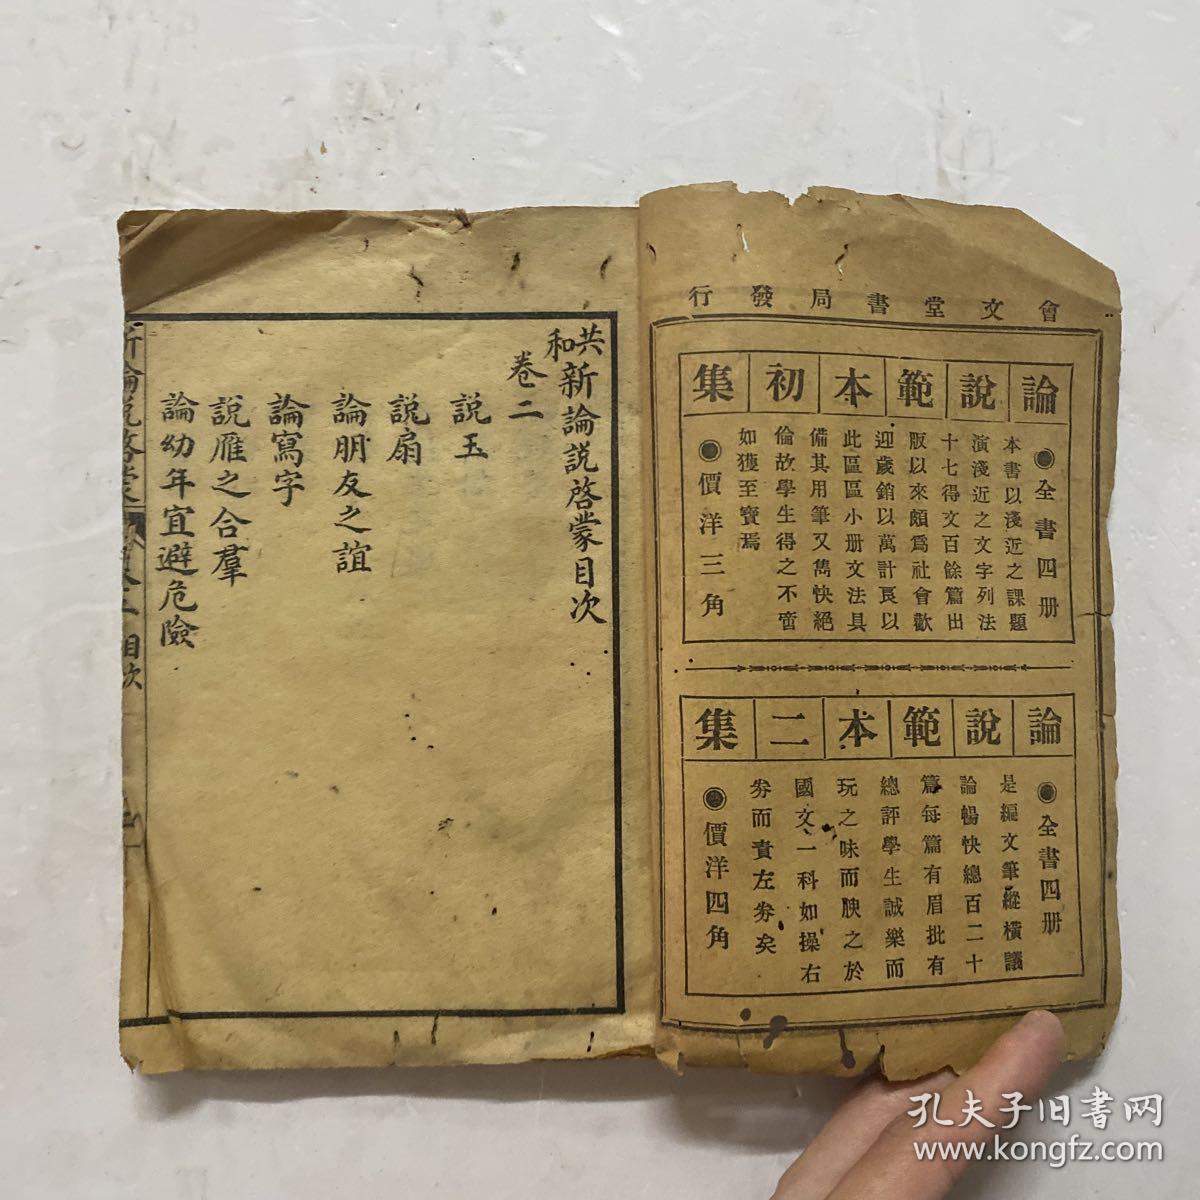 會文堂書局發行
論說範本初集
◉全書四册
本書以淺近之課題
演淺近之文字列法
十七得文百餘篇出
版以來頗爲社會歡
迎歲銷以萬計良以
此區區小册文法具
備其用筆又雋快絕
倫故學生得之不啻
如獲至寶焉
◉價洋三角
論說範本二集
◉全書四册
是編文筆縱橫議
論暢快總百二十
篇每篇有眉批有
總評學生誠樂而
玩之味而腴之於
國文一科如操右
券而責左券矣
◉價洋四角
共和新論説啓蒙目次
卷二
説玉
説扇
論朋友之誼
論寫字
説雁之合羣
論幼年宜避危險
新論説啓蒙
目次
孔夫子旧書网
www.kongfz.com